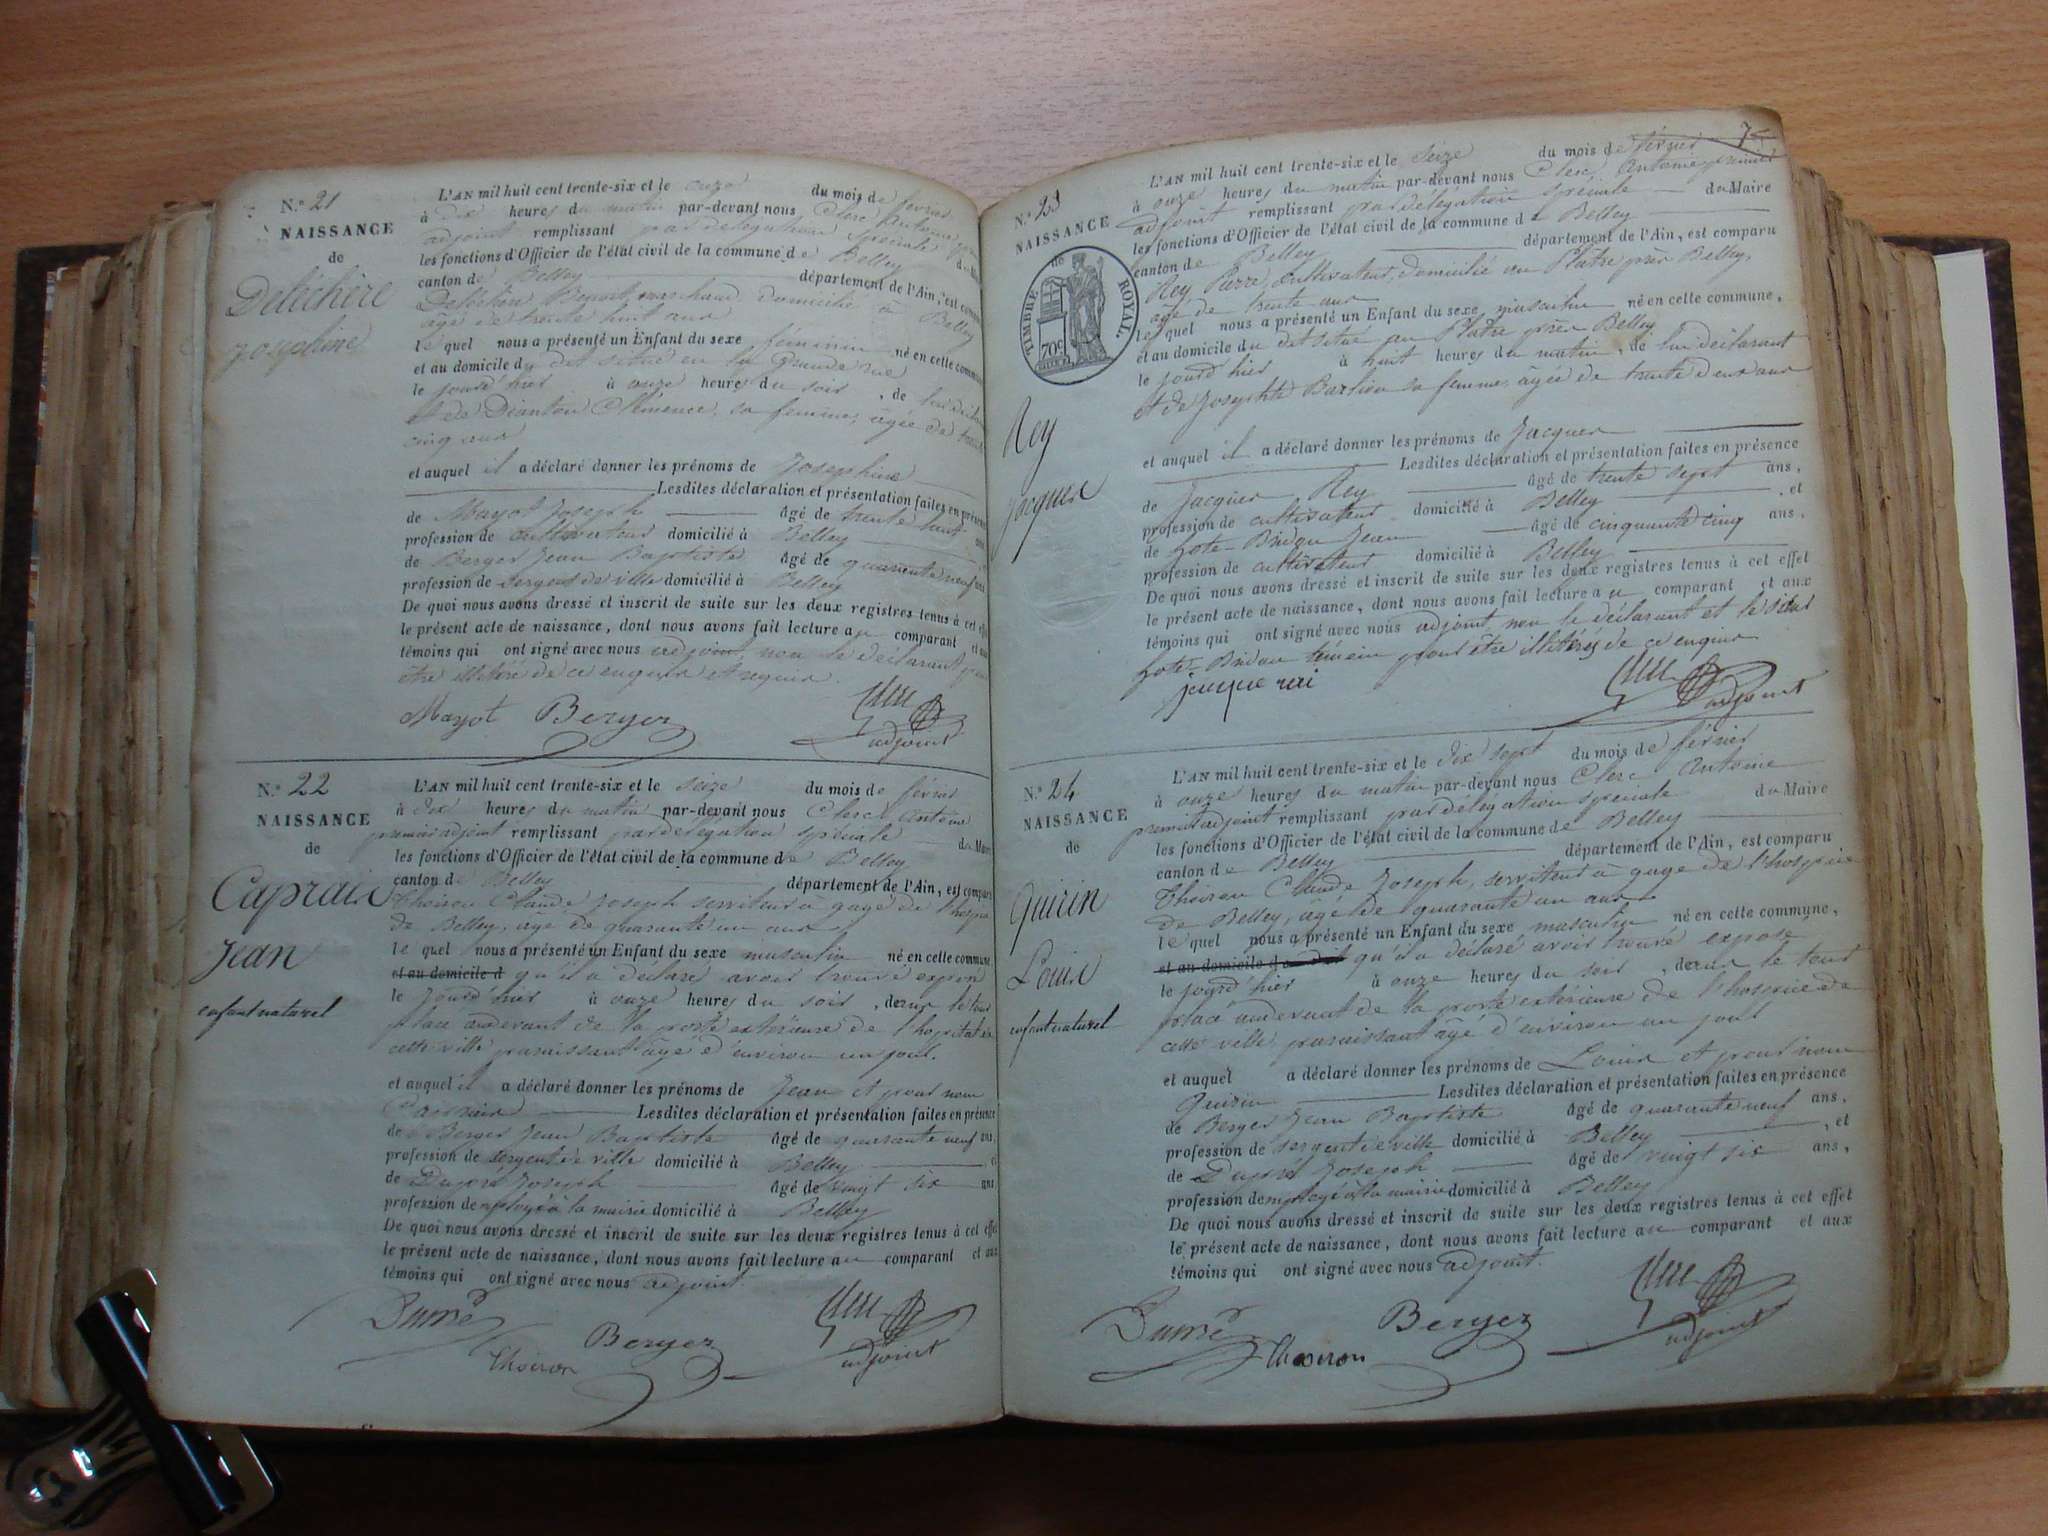 N.° 21
NAISSANCE
de
Deléchère
Joséphine
L'AN mil huit cent trente-six et le onze du mois de février
à dix heures du matin par-devant nous Clerc Antoine
adjoint remplissant par délégation spéciale
les fonctions d'Officier de l'état civil de la commune de Belley
canton de Belley département de l'Ain, est
Benoit, marchand domicilié à Belley
âgé de trente huit ans
lequel nous a présenté un Enfant du sexe féminin né en cette
et au domicile du dit situé en la grande rue
le jourd'hier à onze heures du soir, de lui
et de Dianton Clémence, sa femme, âgée de
cinq ans
et auquel il a déclaré donner les prénoms de Joséphine
Lesdites déclaration et présentation faites en
de Mayot Joseph âgé de trente huit
profession de cultivateur domicilié à Belley
de Berger Jean Baptiste âgé de quarante neuf
profession de sergent de ville domicilié à Belley
De quoi nous avons dressé et inscrit de suite sur les deux registres tenus à cet
le présent acte de naissance, dont nous avons fait lecture au comparant et aux
témoins qui ont signé avec nous adjoint, non le déclarant pour
être illitéré de ce enquis et requis.
Mayot Berger adjoint
N.° 22
NAISSANCE
de
Caprais
Jean
enfant naturel
L'AN mil huit cent trente-six et le seize du mois de février
à dix heures du matin par-devant nous Clerc Antoine
premier adjoint remplissant par délégation spéciale du Maire
les fonctions d'Officier de l'état civil de la commune de Belley
canton de Belley département de l'Ain, est comparu
Thoiron Claude Joseph serviteur à gage de
de Belley, âgé de quarante un ans
lequel nous a présenté un Enfant du sexe masculin né en cette commune,
et au domicile d qu'il a déclaré avoir trouvé exposé
le jourd'hier à onze heures du soir, dessus le tour
placé au devant de la porte extérieure de l'hopital de
cette ville paraissant âgé d'environ un jour.
et auquel il a déclaré donner les prénoms de Jean et pour nom
Caprais Lesdites déclaration et présentation faites en présence
de Berger Jean Baptiste âgé de quarante neuf ans,
profession de sergent de ville domicilié à Belley et
de Dupré Joseph âgé de vingt six ans
profession d'employé à la mairie domicilié à Belley
De quoi nous avons dressé et inscrit de suite sur les deux registres tenus à cet effet
le présent acte de naissance, dont nous avons fait lecture au comparant et aux
témoins qui ont signé avec nous adjoint.
Dupré Thoiron Berger adjoint
7
N.° 23
NAISSANCE
de
TIMBRE ROYAL.
70c
Rey
Jacques
L'AN mil huit cent trente-six et le seize du mois de février
à onze heures du matin par-devant nous Clerc Antoine premier
adjoint remplissant par délégation spéciale du Maire
les fonctions d'Officier de l'état civil de la commune de Belley
canton de Belley département de l'Ain, est comparu
Rey Pierre, cultivateur, domicilié au Plâtre près Belley,
âgé de trente ans
lequel nous a présenté un Enfant du sexe masculin né en cette commune,
et au domicile du dit situé au Plâtre près Belley
le jourd'hier à huit heures du matin, de lui déclarant
et de Josephte sa femme, âgée de trente deux ans
et auquel il a déclaré donner les prénoms de Jacques
Lesdites déclaration et présentation faites en présence
de Jacques Rey âgé de trente sept ans,
profession de cultivateur domicilié à Belley, et
de Jean âgé de cinquante cinq ans,
profession de cultivateur domicilié à Belley
De quoi nous avons dressé et inscrit de suite sur les deux registres tenus à cet effet
le présent acte de naissance, dont nous avons fait lecture au comparant et aux
témoins qui ont signé avec nous adjoint, non le déclarant et le sieur
témoin pour être illitérés de ce enquis
jacque rei adjoint
N.° 24
NAISSANCE
de
Quirin
Louis
enfant naturel
L'AN mil huit cent trente-six et le dix sept du mois de février
à onze heures du matin par-devant nous Clerc Antoine
premier adjoint remplissant par délégation spéciale du Maire
les fonctions d'Officier de l'état civil de la commune de Belley
canton de Belley département de l'Ain, est comparu
Thoiron Claude Joseph, serviteur à gage de l'hospice
de Belley, âgé de quarante un ans
lequel nous a présenté un Enfant du sexe masculin né en cette commune,
et au domicile du dit qu'il a déclaré avoir trouvé exposé
le jourd'hier à onze heures du soir, dessus le tour
placé au devant de la porte extérieure de l'hospice de
cette ville, paraissant âgé d'environ un jour
et auquel a déclaré donner les prénoms de Louis et pour nom
Quirin Lesdites déclaration et présentation faites en présence
de Berger Jean Baptiste âgé de quarante neuf ans,
profession de sergent de ville domicilié à Belley, et
de Dupré Joseph âgé de vingt six ans,
profession d'employé à la mairie domicilié à Belley
De quoi nous avons dressé et inscrit de suite sur les deux registres tenus à cet effet
le présent acte de naissance, dont nous avons fait lecture au comparant et aux
témoins qui ont signé avec nous adjoint.
Dupré Thoiron Berger adjoint